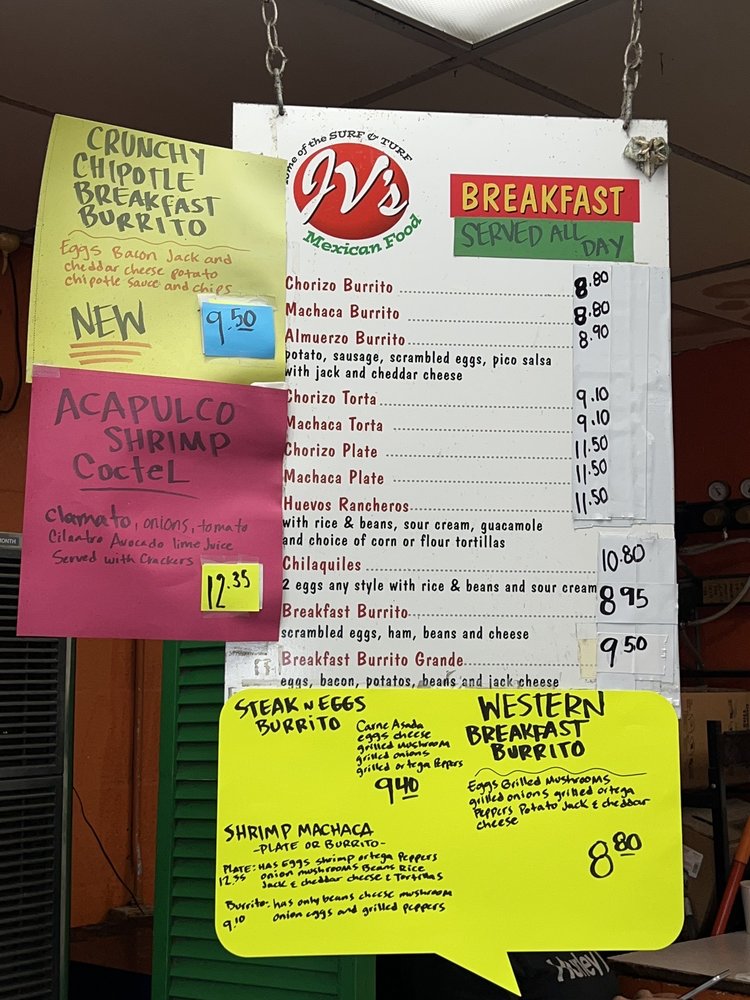 CRUNCHY
CHIPOTLE
BREAKFAST
BURRITO
Eggs Bacon Jack and
cheddar cheese potato
chipotle sauce and chips
NEW
9.50
ACAPULCO
SHRIMP
Coctel
clamato, onions, tomato
Cilantro Avocado lime Juice
Served with Crackers
12.35
ome of the SURF & TURF
JV's
Mexican Food
BREAKFAST
SERVED ALL
DAY
Chorizo Burrito 8.80
Machaca Burrito 8.80
Almuerzo Burrito 8.90
potato, sausage, scrambled eggs, pico salsa
with jack and cheddar cheese
Chorizo Torta 9.10
Machaca Torta 9.10
Chorizo Plate 11.50
Machaca Plate 11.50
Huevos Rancheros 11.50
with rice & beans, sour cream, guacamole
and choice of corn or flour tortillas
Chilaquiles 10.80
2 eggs any style with rice & beans and sour cream
Breakfast Burrito 8.95
scrambled eggs, ham, beans and cheese
Breakfast Burrito Grande 9.50
eggs, bacon, potatoes, beans and jack cheese
STEAK N EGGS
BURRITO
Carne Asada
eggs cheese
grilled mushroom
grilled onions
grilled ortega Peppers
9.40
WESTERN
BREAKFAST
BURRITO
Eggs Grilled Mushrooms
grilled onions grilled ortega
Peppers Potato Jack & cheddar
cheese
8.80
SHRIMP MACHACA
-PLATE OR BURRITO-
PLATE: HAS Eggs shrimp ortega Peppers
12.35 onion mushrooms Beans Rice
Jack & cheddar cheese & Tortillas
Burrito: has only beans cheese mushroom
9.10 onion eggs and grilled peppers
Hurley
MONTH